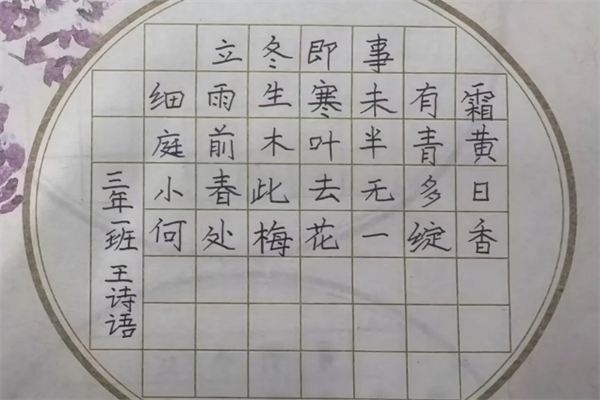 立冬即事
细雨生寒未有霜
庭前木叶半青黄
小春此去无多日
何处梅花一绽香
三年一班 王诗语